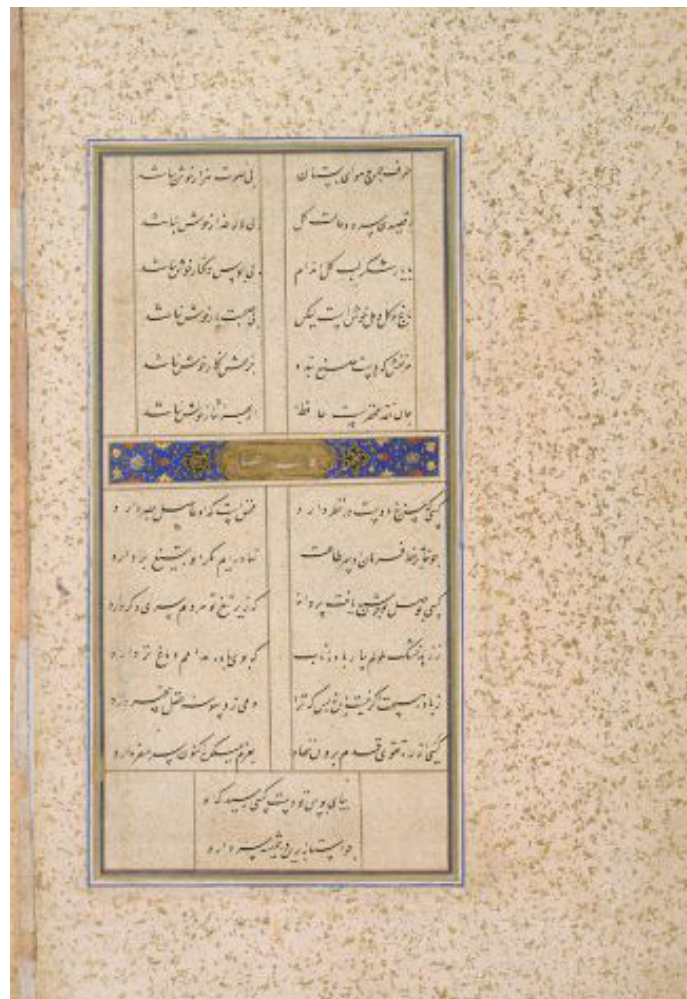 طرف چمن و هوای بستان بی صوت هزار خوش نباشد
رقصیدن سرو و حالت گل بی لاله عذار خوش نباشد
با یار شکرلب گل اندام بی بوس و کنار خوش نباشد
باغ و گل و مل خوش است لیکن بی صحبت یار خوش نباشد
هر نقش که دست صنع بندد جز نقش نگار خوش نباشد
جان نقد محقرست حافظ از بهر نثار خوش نباشد
کسی که حسن رخ دوست در نظر دارد محققست که او حاصل بصر دارد
چو خامه بر خط فرمان او سر طاعت نهاده‌ایم مگر او بتیغ بردارد
کسی بوصل تو چون شمع یافت پروانه که زیر تیغ تو هر دم سری دگر دارد
ز زهد خشک ملولم بیار باده ناب که بوی باده مدامم دماغ تر دارد
ز باده هیچت اگر نیست بس که ترا دمی ز وسوسه عقل بیخبر دارد
کسی که از ره تقوی قدم برون ننهاد بعزم میکده اکنون سر سفر دارد
بپای بوس تو دست کسی رسید که او
چو آستانه بدین در همیشه سر دارد